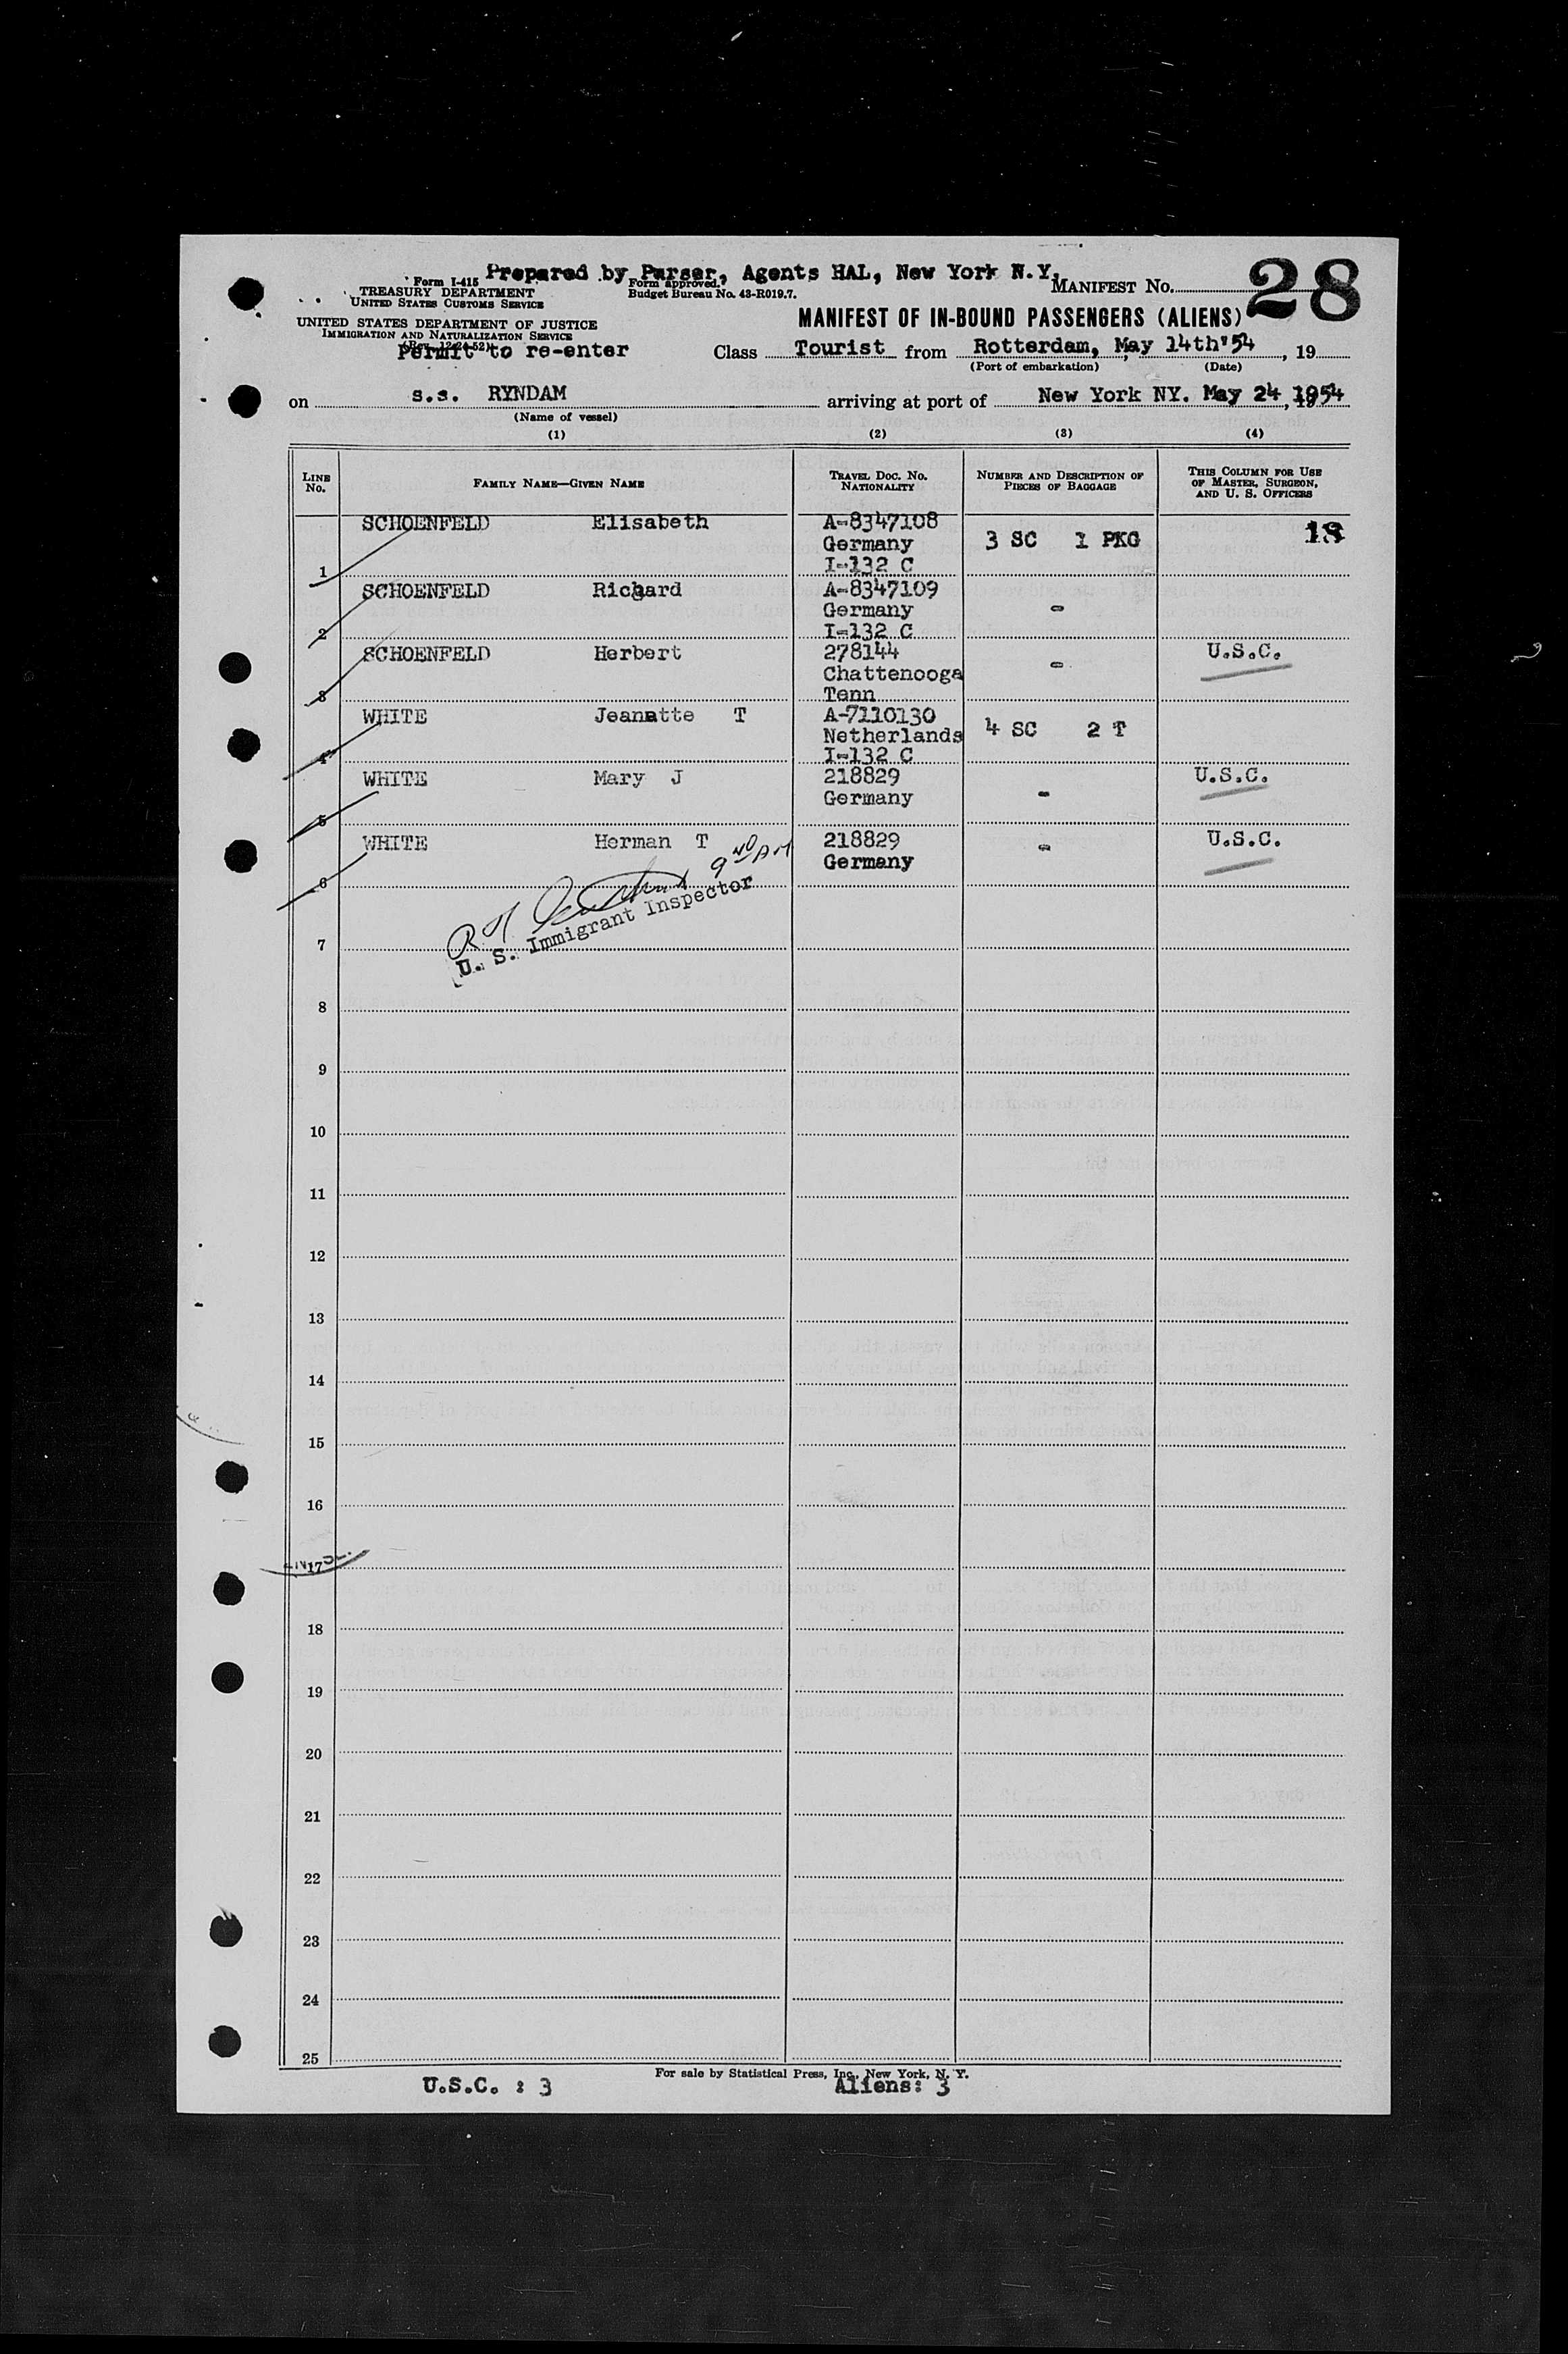 Prepared by Purser, Agents HAL, New York N.Y.
Form I-415
TREASURY DEPARTMENT
UNITED STATES CUSTOMS SERVICE
Form approved.
Budget Bureau No. 43-R019.7.
MANIFEST No. 28
UNITED STATES DEPARTMENT OF JUSTICE
IMMIGRATION AND NATURALIZATION SERVICE
(Rev. 12-24-52)
MANIFEST OF IN-BOUND PASSENGERS (ALIENS)
Permit to re-enter
Class Tourist from Rotterdam, May 14th'54, 19
(Port of embarkation) (Date)
on s.s. RYNDAM arriving at port of New York NY. May 24, 1954
(Name of vessel)
(1) (2) (3) (4)
LINE No. FAMILY NAME—GIVEN NAME TRAVEL DOC. NO. NATIONALITY NUMBER AND DESCRIPTION OF PIECES OF BAGGAGE THIS COLUMN FOR USE OF MASTER, SURGEON, AND U. S. OFFICERS
1 SCHOENFELD Elisabeth A-8347108 Germany I-132 C 3 SC 1 PKG 18
2 SCHOENFELD Richard A-8347109 Germany I-132 C -
3 SCHOENFELD Herbert 278144 Chattenooga Tenn - U.S.C.
4 WHITE Jeanatte T A-7110130 Netherlands I-132 C 4 SC 2 T
5 WHITE Mary J 218829 Germany - U.S.C.
6 WHITE Herman T 218829 Germany - U.S.C.
9 40 AM
U. S. Immigrant Inspector
7
8
9
10
11
12
13
14
15
16
17
18
19
20
21
22
23
24
25
For sale by Statistical Press, Inc., New York, N. Y.
U.S.C. : 3 Aliens: 3